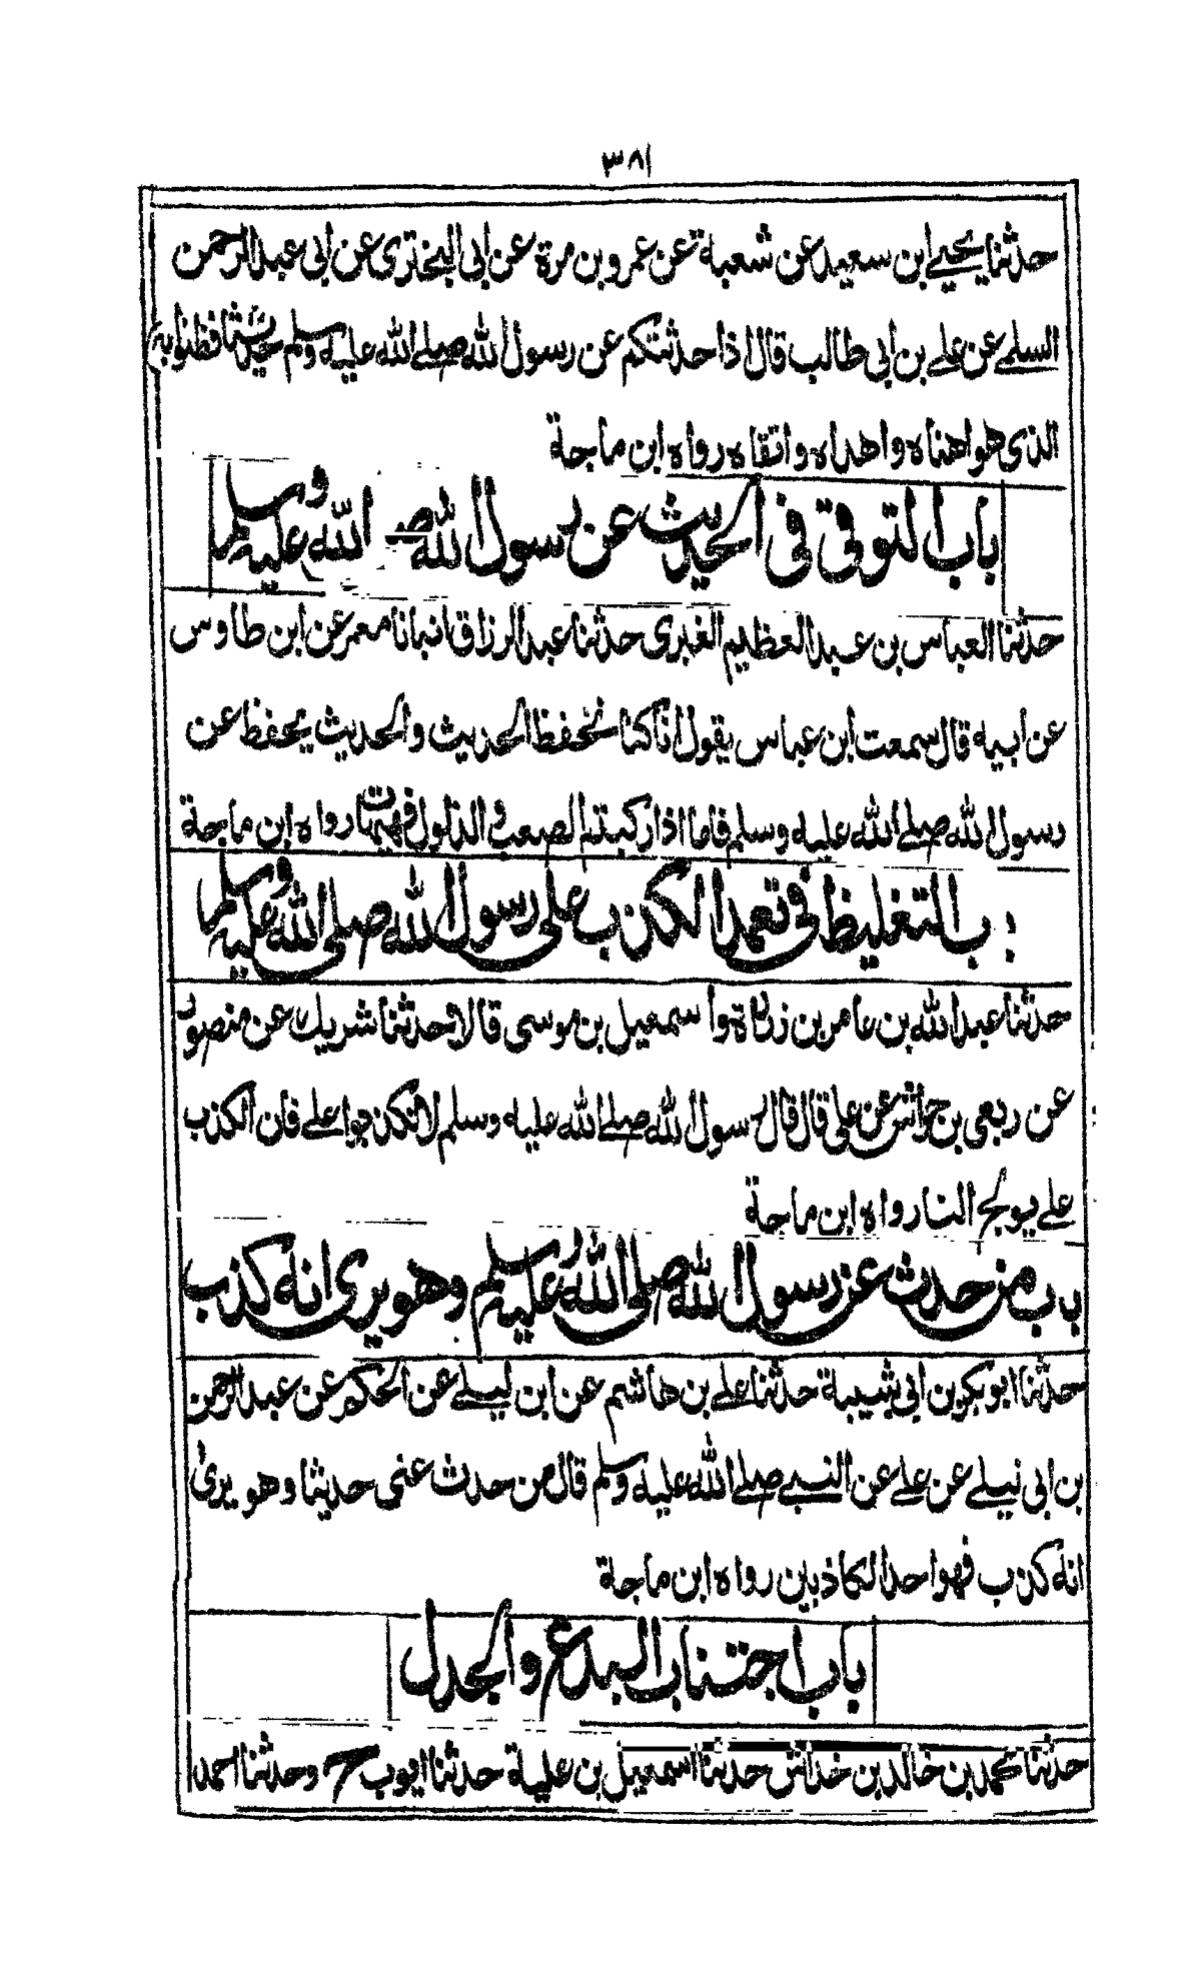 ٣٨١
حدثنا يحيى ابن سعيد عن شعبة عن عمرو بن مرة عن ابى البختري عن ابى عبد الرحمن
السلمے عن علے بن ابى طالب قال اذا حدثتكم عن رسول الله صلے الله عليه وسلم حديثا فظنوا به
الذى هو اهناه واهداه واتقاه رواه ابن ماجة
باب التوقى فى الحديث عن رسول الله صلے الله عليه وسلم
حدثنا العباس بن عبد العظيم العنبرى حدثنا عبد الرزاق انبانا معمر عن ابن طاوس
عن ابيه قال سمعت ابن عباس يقول انا كنا نحفظ الحديث والحديث يحفظ عن
رسول الله صلے الله عليه وسلم فاما اذا ركبتم الصعب والذلول فهيهات رواه ابن ماجة
باب التغليظ فى تعمد الكذب على رسول الله صلى الله عليه وسلم
حدثنا عبد الله بن عامر بن زرارة واسمعيل بن موسى قالا حدثنا شريك عن منصور
عن ربعى بن حراش عن على قال قال رسول الله صلے الله عليه وسلم لا تكذبوا علے فان الكذب
علے يولج النار رواه ابن ماجة
باب من حدث عن رسول الله صلى الله عليه وسلم وهو يرى انه كذب
حدثنا ابو بكر بن ابى شيبة حدثنا علے بن هاشم عن ابن ليلے عن الحكم عن عبد الرحمن
بن ابى ليلے عن علے عن النبے صلے الله عليه وسلم قال من حدث عنى حديثا وهو يرى
انه كذب فهو احد الكاذبين رواه ابن ماجة
باب اجتناب البدع والجدل
حدثنا محمد بن خالد بن خداش حدثنا اسمعيل بن علية حدثنا ايوب ح وحدثنا احمد